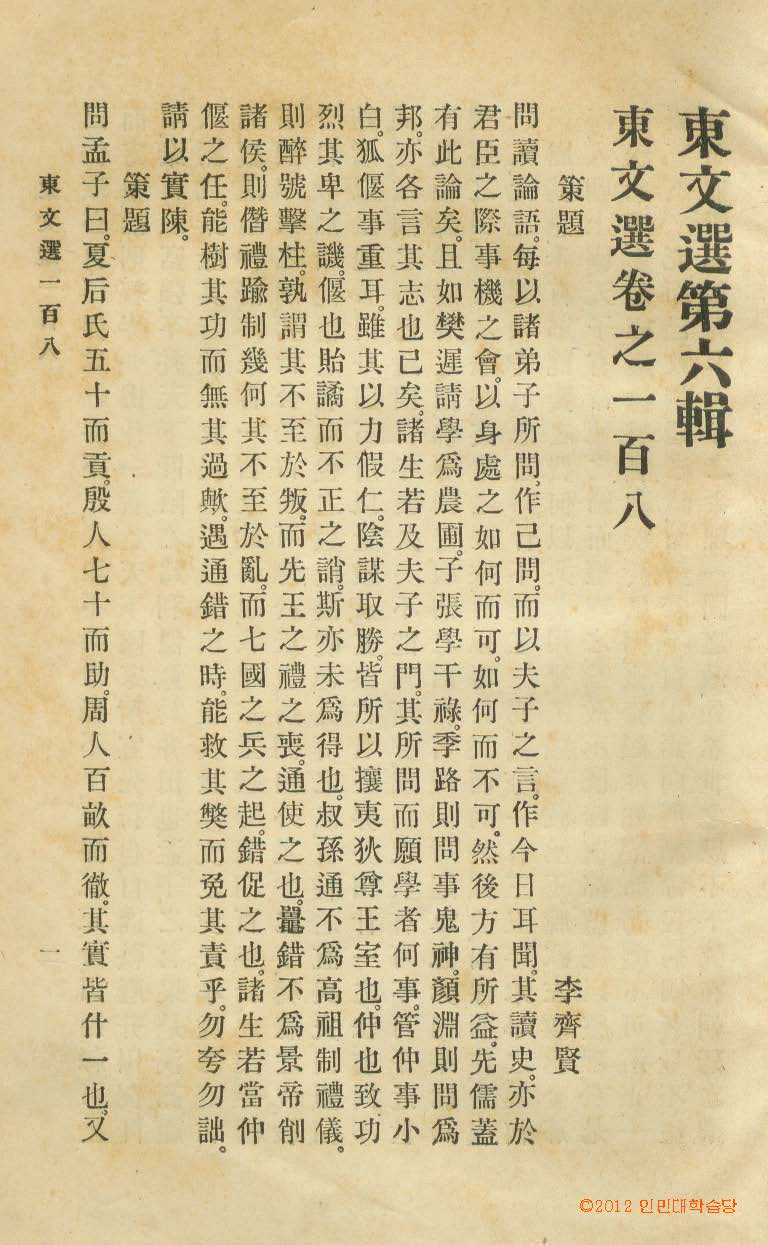 東文選第六輯
東文選卷之一百八
策題 李齊賢
問讀論語。每以諸弟子所問。作己問。而以夫子之言。作今日耳聞。其讀史。亦於
君臣之際事機之會。以身處之如何而可。如何而不可。然後方有所益。先儒蓋
有此論矣。且如樊遲請學爲農圃。子張學干祿。季路則問事鬼神。顏淵則問爲
邦。亦各言其志也已矣。諸生若及夫子之門。其所問而願學者何事。管仲事小
白。狐偃事重耳。雖其以力假仁。陰謀取勝。皆所以攘夷狄尊王室也。仲也致功
烈其卑之譏。偃也貽譎而不正之誚。斯亦未爲得也。叔孫通不爲高祖制禮儀。
則醉號擊柱。孰謂其不至於叛。而先王之禮之喪。通使之也。鼂錯不爲景帝削
諸侯。則僭禮踰制幾何其不至於亂。而七國之兵之起。錯促之也。諸生若當仲
偃之任。能樹其功而無其過歟。遇通錯之時。能救其獘而免其責乎。勿夸勿詘。
請以實陳。
策題
問孟子曰。夏后氏五十而貢。殷人七十而助。周人百畝而徹。其實皆什一也。又
東文選一百八 一
©2012 인민대학습당